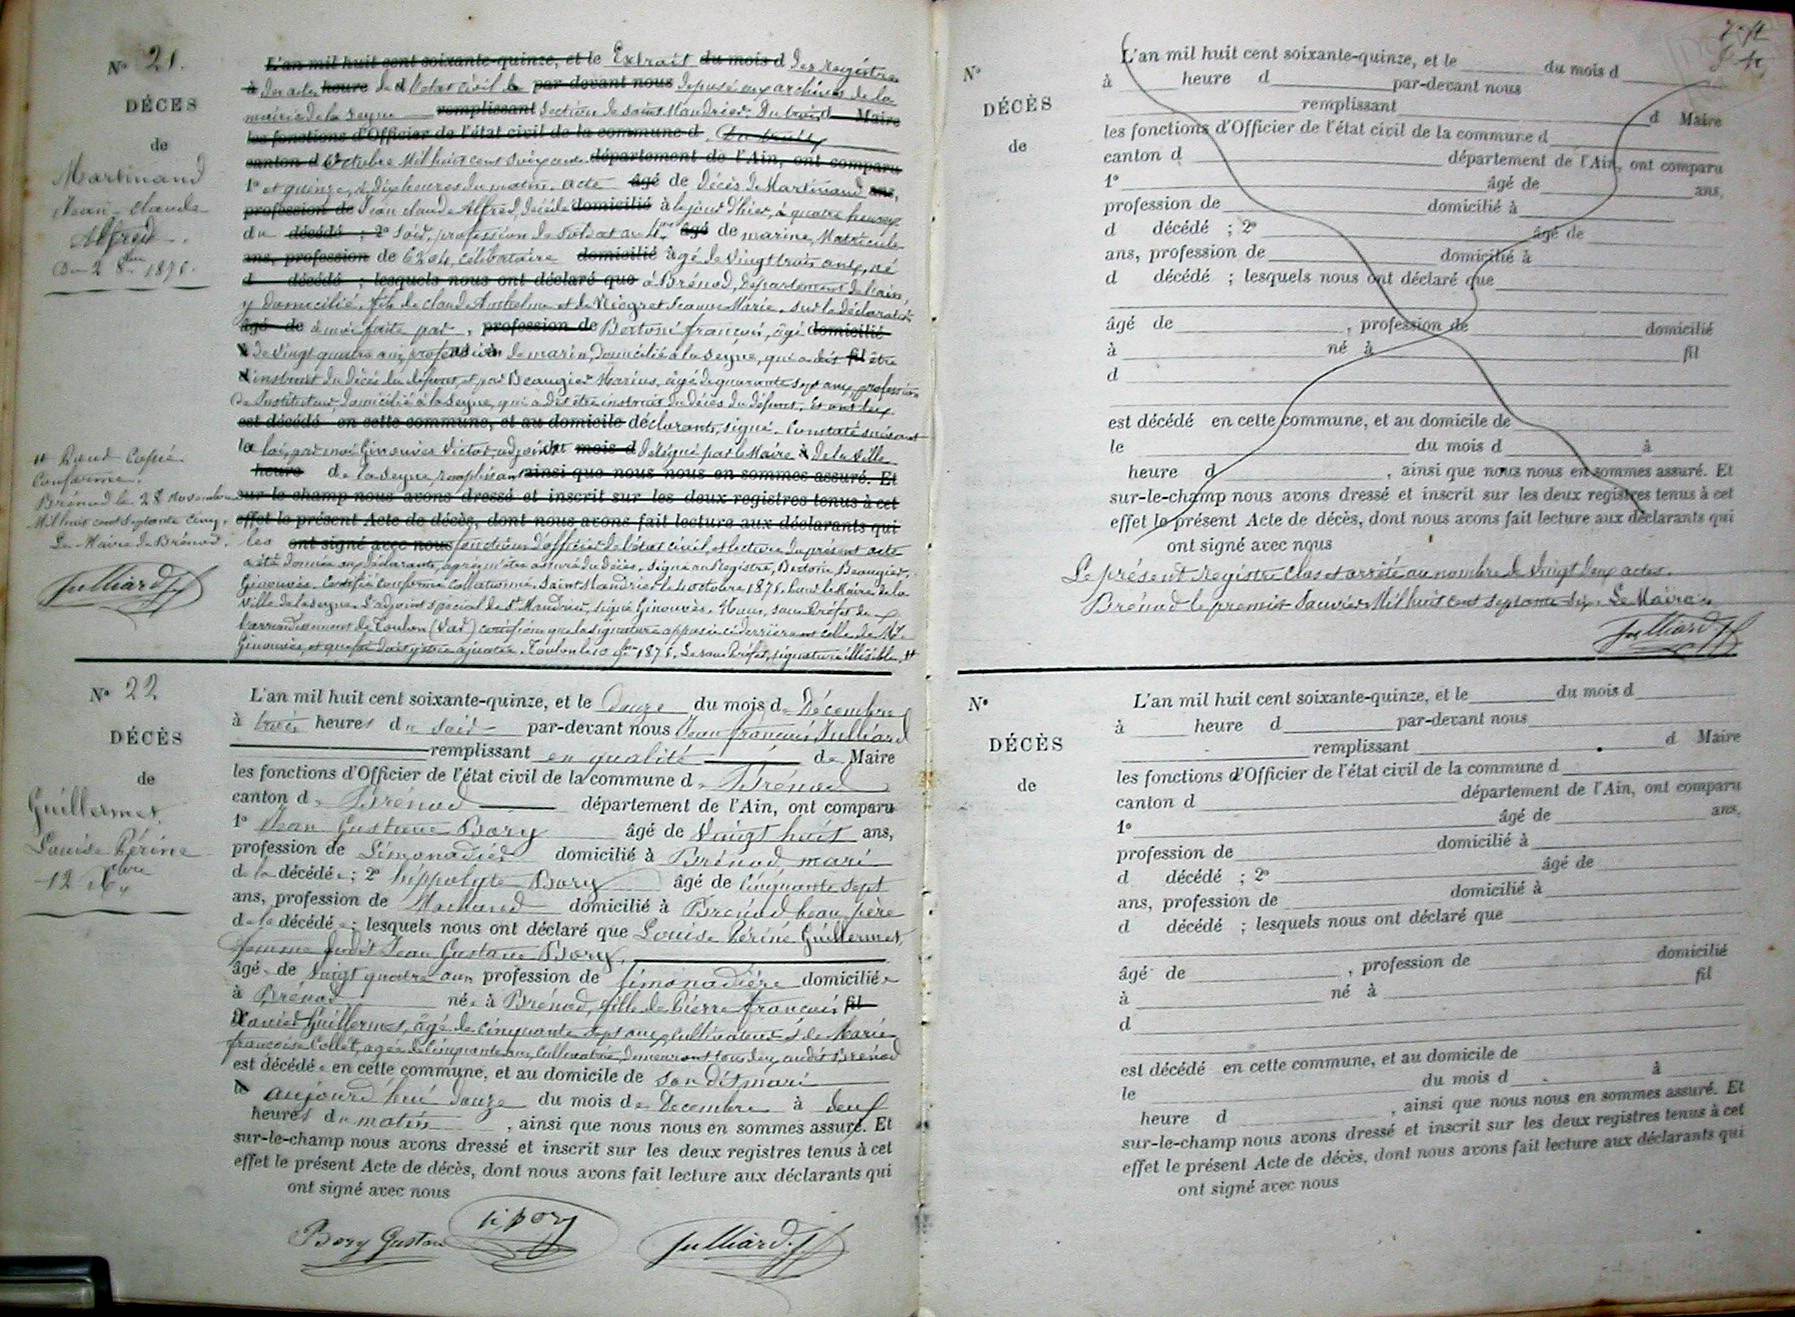 N° 21.
DÉCES
de
Martinand
Jean-claude
Alfred.
Du 2 8bre 1875.
L'an mil huit cent soixante-quinze, et le Extrait du mois d des Registres
à des actes heure de d l'état civil de par-devant nous déposé aux archives de la
mairie de la Seyne remplissant Section de Saint Mandrier. Du trois d Maire
les fonctions d'Officier de l'état civil de la commune d
canton d octobre Mil huit cent soixante département de l'Ain, ont comparu
1° et quinze, à dix heures du matin. acte âgé de décès de Martinand ans,
profession de Jean claude Alfred, décédé domicilié à le jour d'hier, à quatre heures
du décédé ; 2° soir, profession de Soldat au 4me âgé de marine, Matricule
ans, profession de 6204, célibataire domicilié âgé de vingt trois ans, né
d décédé ; lesquels nous ont déclaré que à Brénod, département de l'ain,
y domicilié, fils de claude Anthelme et de Jeanne Marie. Sur la déclaration
âgé de à moi faite par , profession de Bertoni françois, âgé domicilié
à de vingt quatre ans, profession né à de marin, domicilié à la Seyne, qui a dit fil être
d instruit du décès du défunt, et par Beaugier Marius, âgé de quarante sept ans, profession
de Instituteur, domicilié à la Seyne, qui a dit être instruit du décès du défunt. Et ont les
est décédé en cette commune, et au domicile de déclarants, signé. Constaté suivant
le la loi, par moi Ginouvès Victor, adjoint du mois d délégué par le Maire à de la ville
heure de la Seyne remplissant ainsi que nous nous en sommes assuré. Et
sur-le-champ nous avons dressé et inscrit sur les deux registres tenus à cet
effet le présent Acte de décès, dont nous avons fait lecture aux déclarants qui
les ont signé avec nous fonctions d'officier de l'état civil, et lecture du présent acte
a été donnée aux déclarants, après m'être assuré du décès. Signé au Registre, Bertoni, Beaugier,
Ginouvès. Certifié conforme collationné. Saint Mandrier le 4 octobre 1875. Pour le Maire de la
ville de la Seyne. L'adjoint spécial de St Mandrier, signé Ginouvès. Nous, sous-Préfet de
l'arrondissement de Toulon (Var) certifions que la signature apposée ci-derrière est celle de Mr
Ginouvès, et que foi doit y être ajoutée. Toulon le 10 9bre 1875. Le sous-Préfet, signature illisible. #
# Pour Copie
Conforme.
Brénod le 28 novembre
Mil huit cent septante cinq.
Le Maire de Brénod.
Julliard J.f
N° 22
DÉCÈS
de
Guillermet
Louise Périne
12 Xbre
L'an mil huit cent soixante-quinze, et le douze du mois de Décembre
à trois heures du soir par-devant nous Jean françois Julliard
remplissant en qualité de Maire
les fonctions d'Officier de l'état civil de la commune de Brénod
canton de Brénod département de l'Ain, ont comparu
1° Jean Gustave Bory âgé de vingt huit ans,
profession de Limonadier domicilié à Brénod mari
de la décédée ; 2° hippolyte Bory âgé de cinquante sept
ans, profession de Marchand domicilié à Brénod beau père
de la décédée ; lesquels nous ont déclaré que Louise Périne Guillermet,
femme dudit Jean Gustave Bory,
âgée de vingt quatre ans profession de limonadière domiciliée
à Brénod née à Brénod, fille de Pierre françois fil
Xavier Guillermet, âgé de cinquante sept ans cultivateur & de Marie
françoise Collet, agée de cinquante ans, cultivatrice, demeurant tous deux audit Brénod
est décédée en cette commune, et au domicile de son dit mari
le aujourd'hui douze du mois de Décembre à deux
heures du matin , ainsi que nous nous en sommes assuré. Et
sur-le-champ nous avons dressé et inscrit sur les deux registres tenus à cet
effet le présent Acte de décès, dont nous avons fait lecture aux déclarants qui
ont signé avec nous
Bory Gustave
h. Bory
Julliard J.f
N°
DÉCÈS
de
L'an mil huit cent soixante-quinze, et le du mois d
à heure d par-devant nous
remplissant d Maire
les fonctions d'Officier de l'état civil de la commune d
canton d département de l'Ain, ont comparu
1° âgé de ans,
profession de domicilié à
d décédé ; 2° âgé de
ans, profession de domicilié à
d décédé ; lesquels nous ont déclaré que
âgé de , profession de domicilié
à né à fil
d
est décédé en cette commune, et au domicile de
le du mois d à
heure d , ainsi que nous nous en sommes assuré. Et
sur-le-champ nous avons dressé et inscrit sur les deux registres tenus à cet
effet le présent Acte de décès, dont nous avons fait lecture aux déclarants qui
ont signé avec nous
Le présent Registre clos et arrêté au nombre de vingt deux actes.
Brénod le premier Janvier Mil huit cent septante six. Le Maire
Julliard J.f
N°
DÉCÈS
de
L'an mil huit cent soixante-quinze, et le du mois d
à heure d par-devant nous
remplissant d Maire
les fonctions d'Officier de l'état civil de la commune d
canton d département de l'Ain, ont comparu
1° âgé de ans,
profession de domicilié à
d décédé ; 2° âgé de
ans, profession de domicilié à
d décédé ; lesquels nous ont déclaré que
âgé de , profession de domicilié
à né à fil
d
est décédé en cette commune, et au domicile de
le du mois d à
heure d , ainsi que nous nous en sommes assuré. Et
sur-le-champ nous avons dressé et inscrit sur les deux registres tenus à cet
effet le présent Acte de décès, dont nous avons fait lecture aux déclarants qui
ont signé avec nous